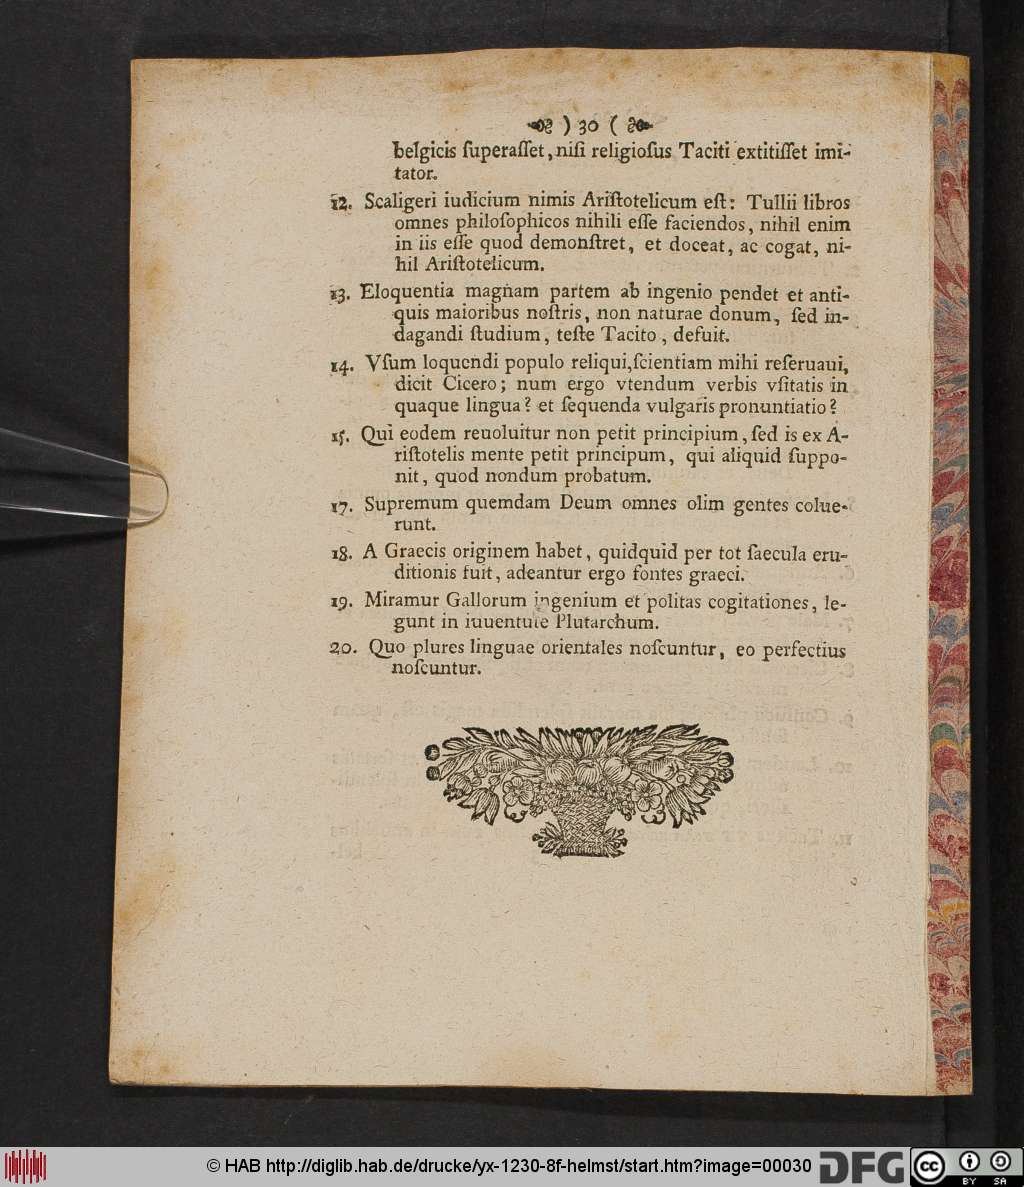 ) 30 (
belgicis ſuperaſſet, niſi religioſus Taciti extitiſſet imi-
tator.
12. Scaligeri iudicium nimis Ariſtotelicum eſt: Tullii libros
omnes philoſophicos nihili eſſe faciendos, nihil enim
in iis eſſe quod demonſtret, et doceat, ac cogat, ni-
hil Ariſtotelicum.
13. Eloquentia magnam partem ab ingenio pendet et anti-
quis maioribus noſtris, non naturae donum, ſed in-
dagandi ſtudium, teſte Tacito, defuit.
14. Vſum loquendi populo reliqui, ſcientiam mihi reſeruaui,
dicit Cicero; num ergo vtendum verbis vſitatis in
quaque lingua? et ſequenda vulgaris pronuntiatio?
15. Qui eodem reuoluitur non petit principium, ſed is ex A-
riſtotelis mente petit principum, qui aliquid ſuppo-
nit, quod nondum probatum.
17. Supremum quemdam Deum omnes olim gentes colue-
runt.
18. A Graecis originem habet, quidquid per tot ſaecula eru-
ditionis fuit, adeantur ergo fontes graeci.
19. Miramur Gallorum ingenium et politas cogitationes, le-
gunt in iuuentute Plutarchum.
20. Quo plures linguae orientales noſcuntur, eo perfectius
noſcuntur.
© HAB http://diglib.hab.de/drucke/yx-1230-8f-helmst/start.htm?image=00030
DFG
cc BY SA